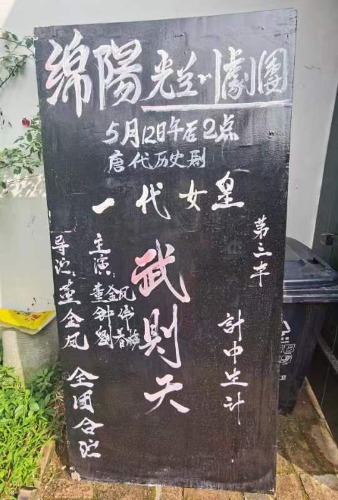 綿陽 光兰川劇團
5月12日午后2点
唐代历史剧
一代女皇
武則天
第三本
計中生計
主演:
董金凤
钟伟
劉
导演:董金凤
全团合演